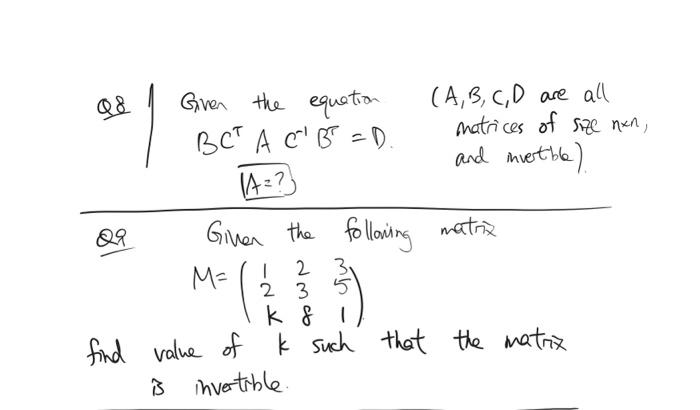 Q8 Given the equation (A,B,C,D are all
BCᵀ A C⁻¹ Bᵀ = D. matrices of size n×n,
A=? and invertible).
Q9 Given the following matrix
M= ( 1 2 3
2 3 5
k 8 1 )
find value of k such that the matrix
is invertible.